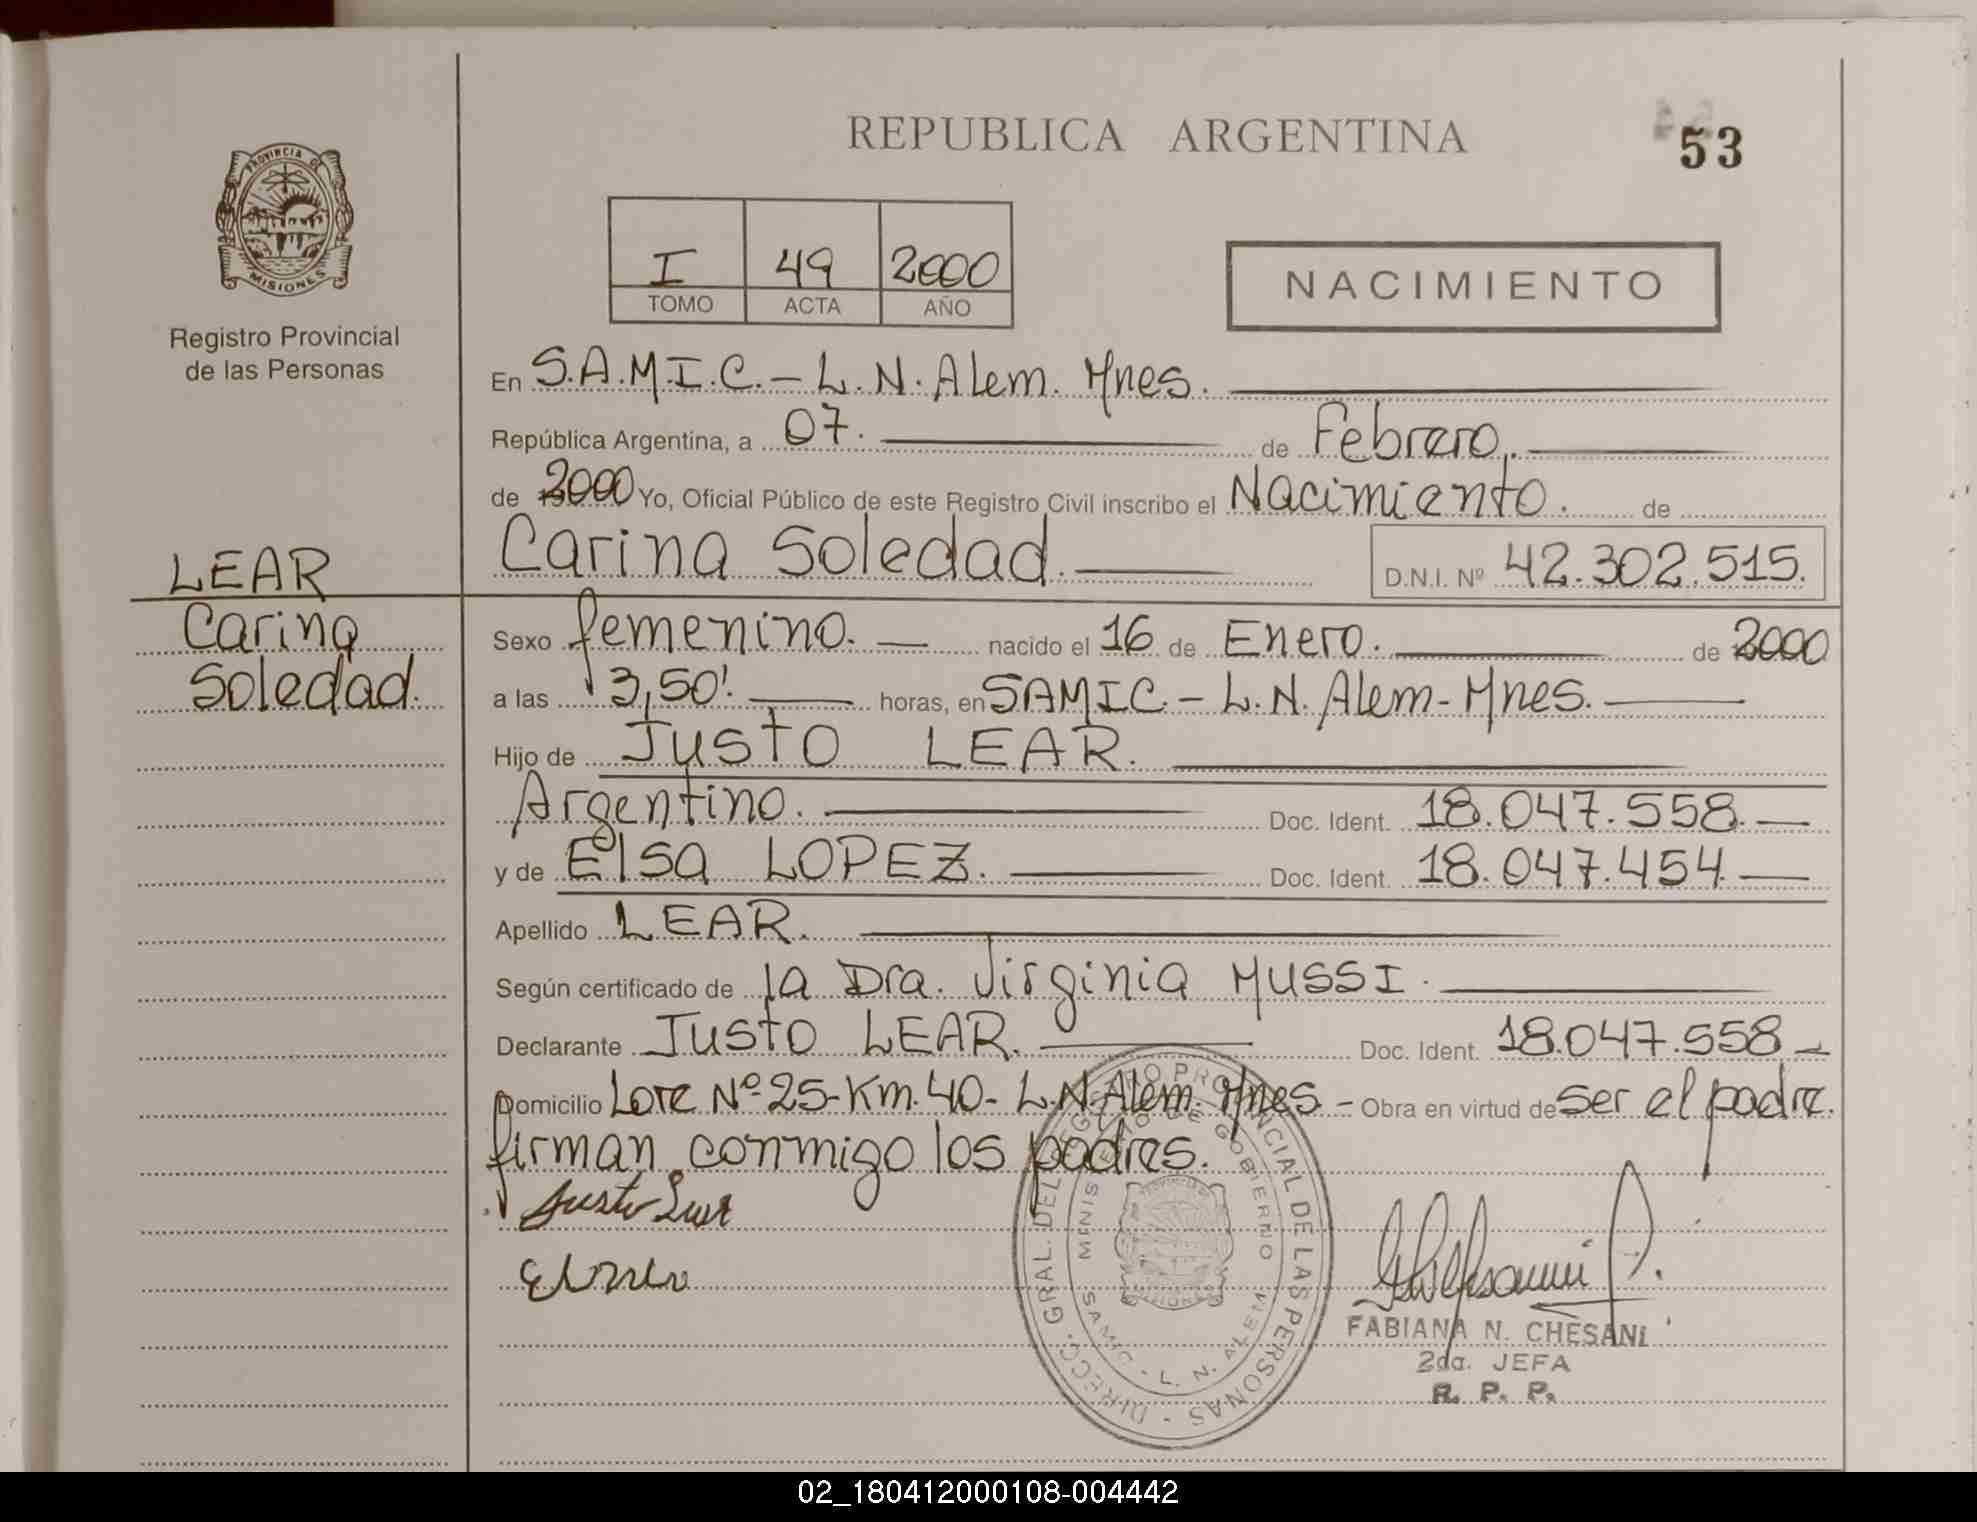 REPUBLICA ARGENTINA
53
PROVINCIA D
MISIONES
Registro Provincial
de las Personas
I 49 2000
TOMO ACTA AÑO
NACIMIENTO
En S.A.M.I.C.- L.N. Alem. Mnes.
República Argentina, a 07. de Febrero,
de 2000 Yo, Oficial Público de este Registro Civil inscribo el Nacimiento. de
Carina Soledad. D.N.I. Nº 42.302.515.
LEAR
Carina
Soledad.
Sexo femenino. nacido el 16 de Enero. de 2000
a las 3,50'. horas, en SAMIC.- L.N. Alem- Mnes.
Hijo de Justo LEAR.
Argentino. Doc. Ident. 18.047.558.
y de Elsa LOPEZ. Doc. Ident. 18.047.454.
Apellido LEAR.
Según certificado de la Dra. Virginia MUSSI.
Declarante Justo LEAR. Doc. Ident. 18.047.558
Domicilio Lote Nº 25-Km.40- L.N.Alem. Mnes - Obra en virtud de ser el padre.
firman conmigo los padres.
Justo Lear
FABIANA N. CHESANI
2da. JEFA
R. P. P.
DIRECC. GRAL. DEL REGISTRO PROVINCIAL DE LAS PERSONAS
MINISTERIO DE GOBIERNO
SAMIC - L. N. ALEM
02_180412000108-004442